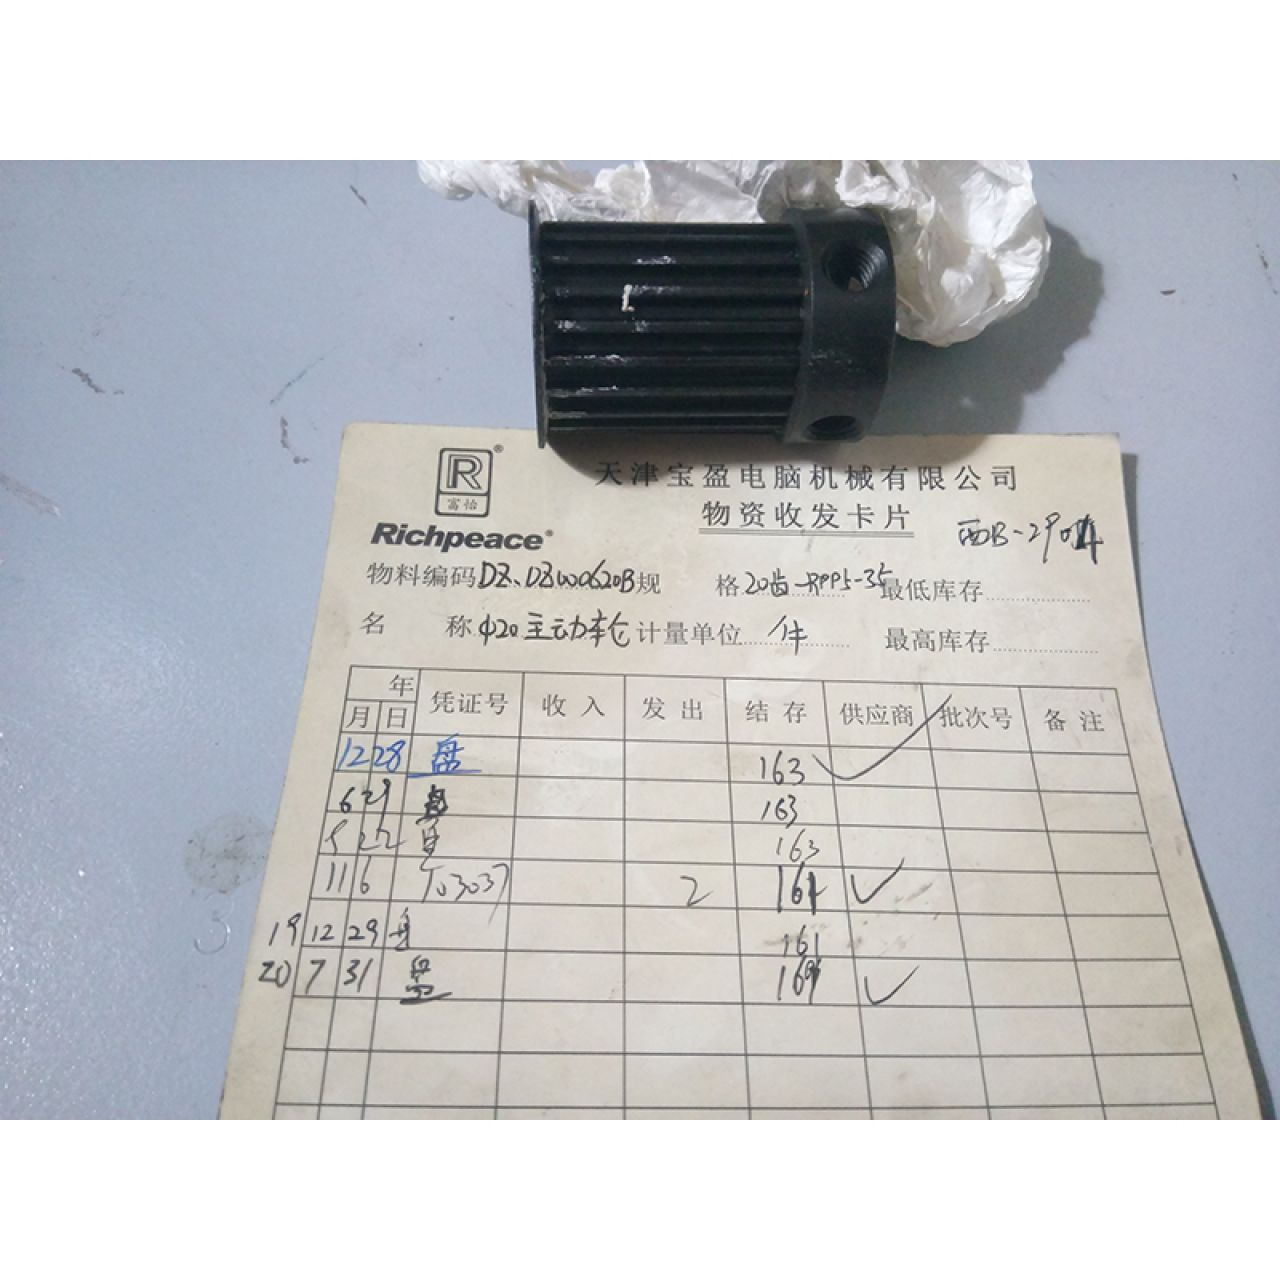 R®
富怡
Richpeace®
天津宝盈电脑机械有限公司
物资收发卡片
西B-29
物料编码 DZ、DZW00620B 规 格 20齿-RPP5-35 最低库存
名 称 φ20主动车仑 计量单位 件 最高库存
年 凭证号 收入 发出 结存 供应商 批次号 备注
月 日
12 28 盘 163
6 29 盘 163
22 163
11 6 T03037 2 161
19 12 29 161
20 7 31 盘